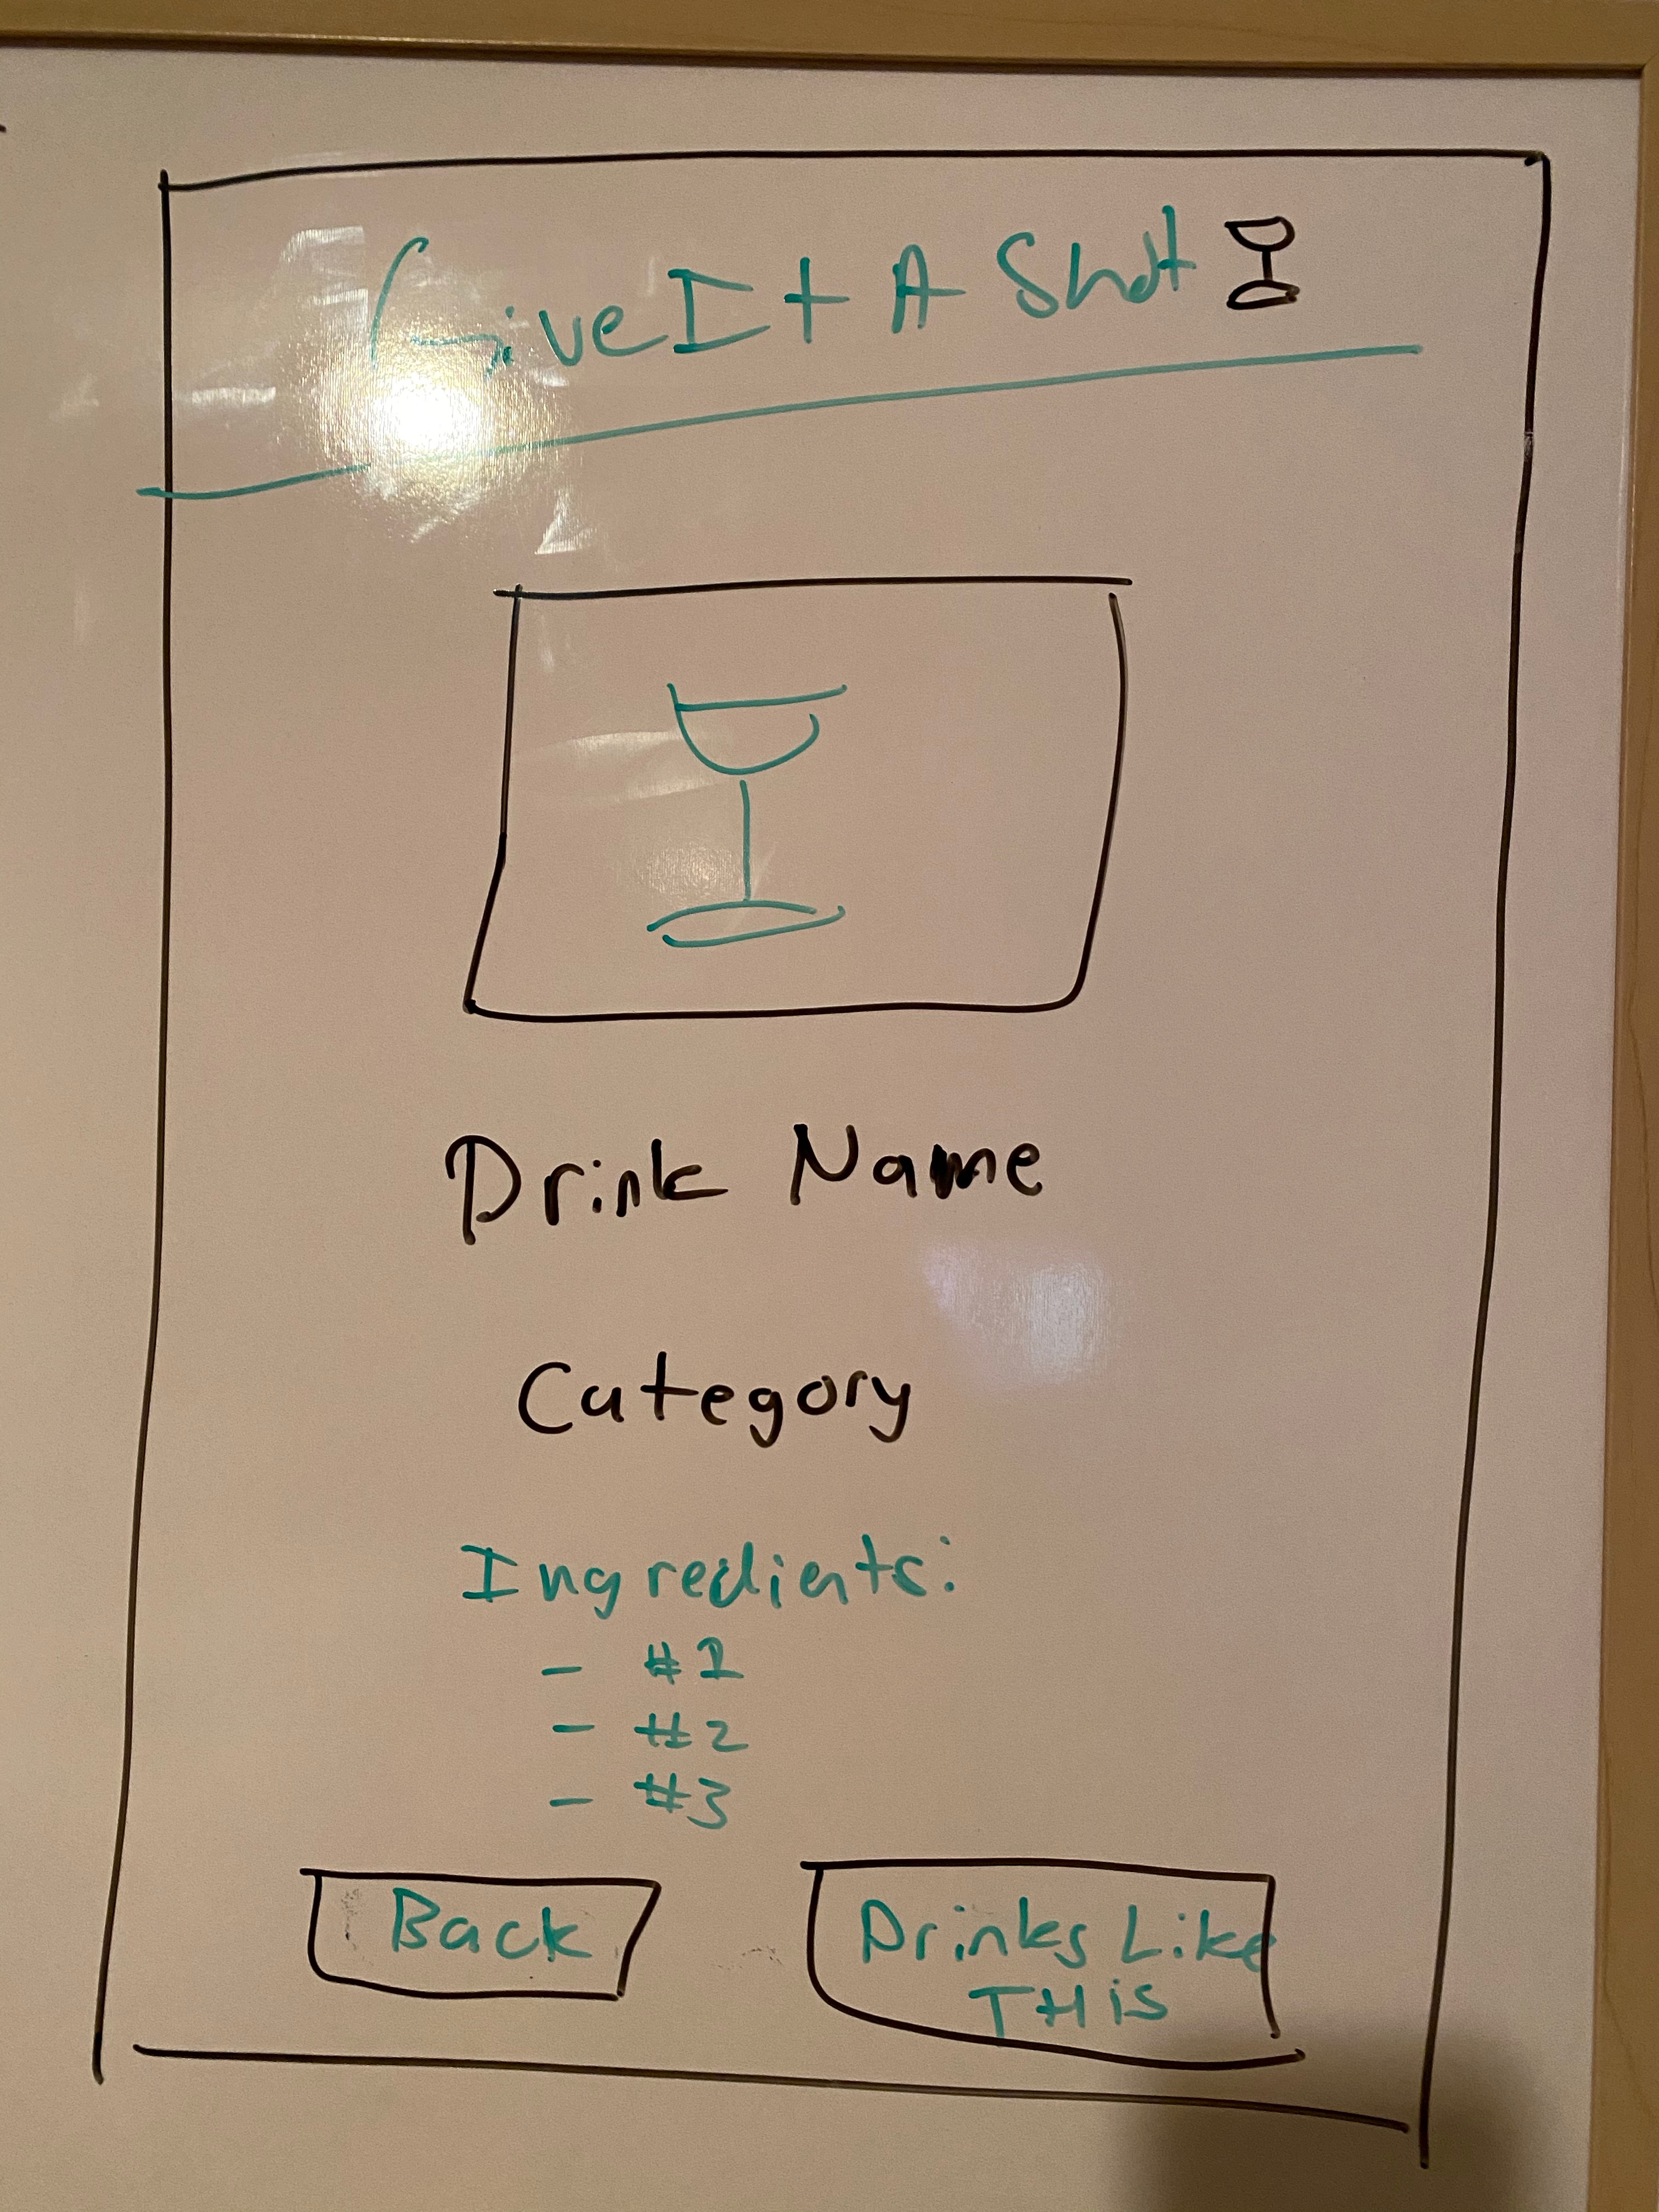 Give It A Shot
Drink Name
Category
Ingredients:
- #1
- #2
- #3
Back
Drinks Like
THis